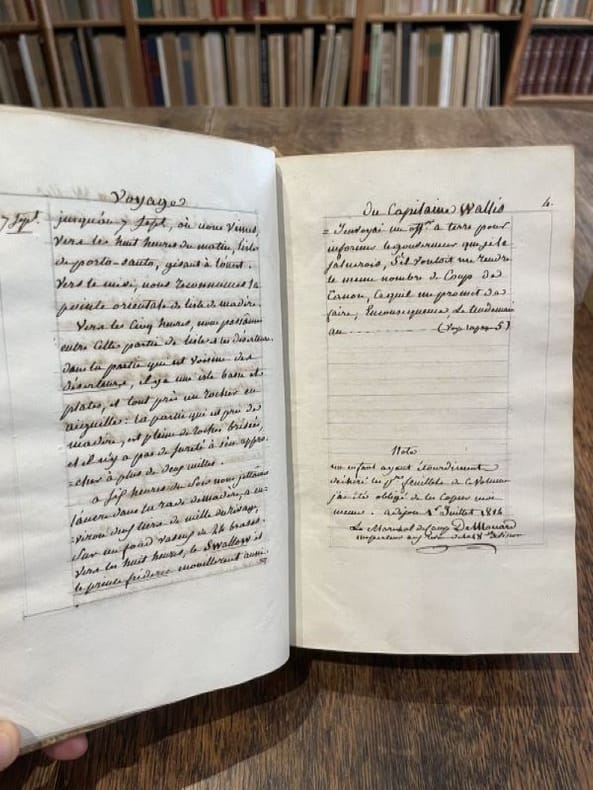 Voyage
7 Sept.
jusqu'au 7 Sept, où nous vimes,
vers les huit heures du matin, l'isle
de porto-santo, gisant à l'ouest.
vers le midi, nous reconnumes la
pointe orientale de l'isle de madère.
Vers les Cinq heures, nous passâmes
entre cette partie de l'isle & les désertes.
dans la partie qui est voisine des
désertes, il y a une isle basse et
plate, et tout près un rocher en
aiguille: la partie qui est près de
madère, est pleine de roches brisées,
et il n'y a pas de sureté à s'en appro-
cher à plus de deux milles.
à six heures du soir nous jettâmes
l'ancre dans la rade de madère, à en-
viron deux tiers de mille du rivage,
sur un fond vaseux de 24 brasses.
vers les huit heures, le Swallow et
le prince fréderic mouillerent aussi.
Du Capitaine Wallis
4.
= J'envoyai un off.er à terre pour
informer le gouverneur que je le
saluerois, S'il vouloit me rendre
le même nombre de Coups de
Canon, ce qu'il me promit de
faire, En consequence, le lendemain
au (Voy. la page 5)
Nota
un enfant ayant étourdiment
déchiré les feuillets de ce Volume
j'ai été obligé de les Copier moi
meme. à dijon 1er Juillet 1814
Le Maréchal de Camp
inspecteur aux